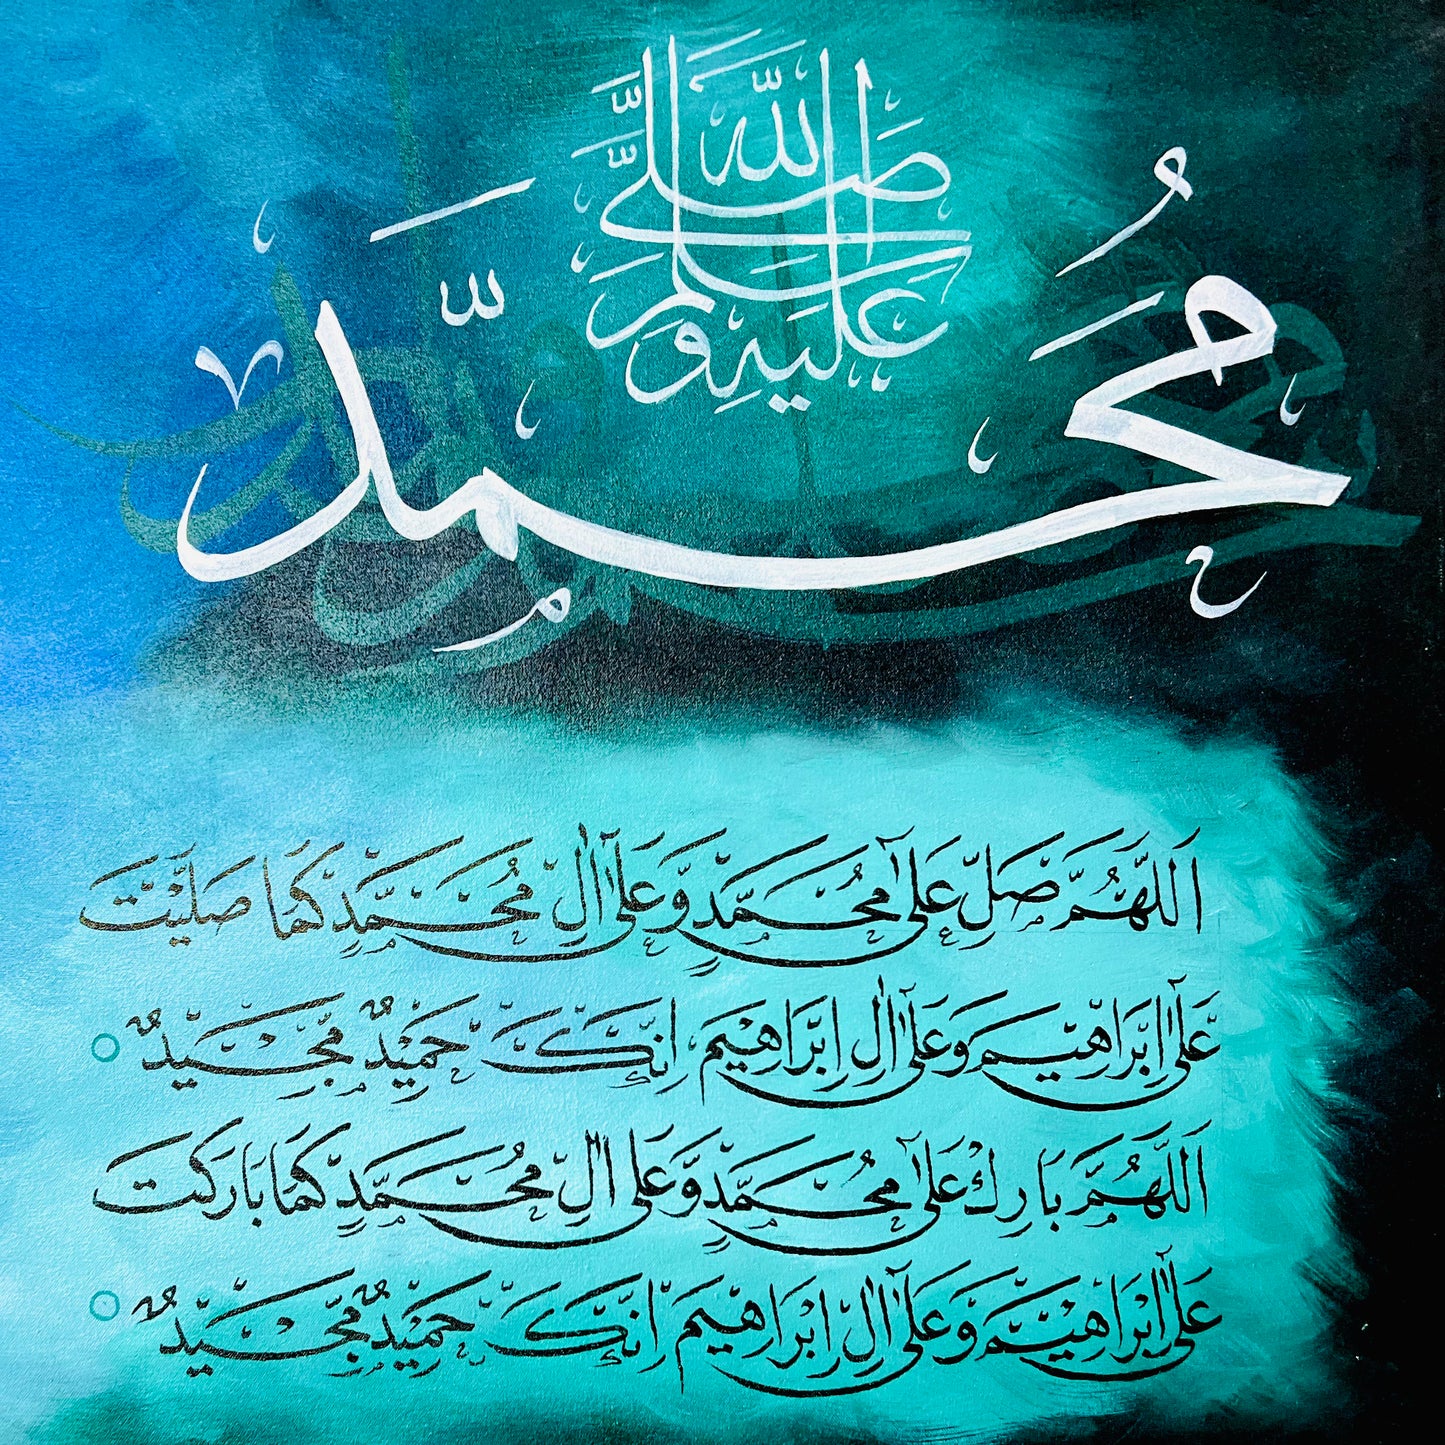 صَلَّى اللّٰهُ عَلَيْهِ وَسَلَّمَ
مُحَمَّد
اَللّٰهُمَّ صَلِّ عَلٰى مُحَمَّدٍ وَّعَلٰى اٰلِ مُحَمَّدٍ كَمَا صَلَّيْتَ
عَلٰى اِبْرَاهِيْمَ وَعَلٰى اٰلِ اِبْرَاهِيْمَ اِنَّكَ حَمِيْدٌ مَّجِيْدٌ
اَللّٰهُمَّ بَارِكْ عَلٰى مُحَمَّدٍ وَّعَلٰى اٰلِ مُحَمَّدٍ كَمَا بَارَكْتَ
عَلٰى اِبْرَاهِيْمَ وَعَلٰى اٰلِ اِبْرَاهِيْمَ اِنَّكَ حَمِيْدٌ مَّجِيْدٌ